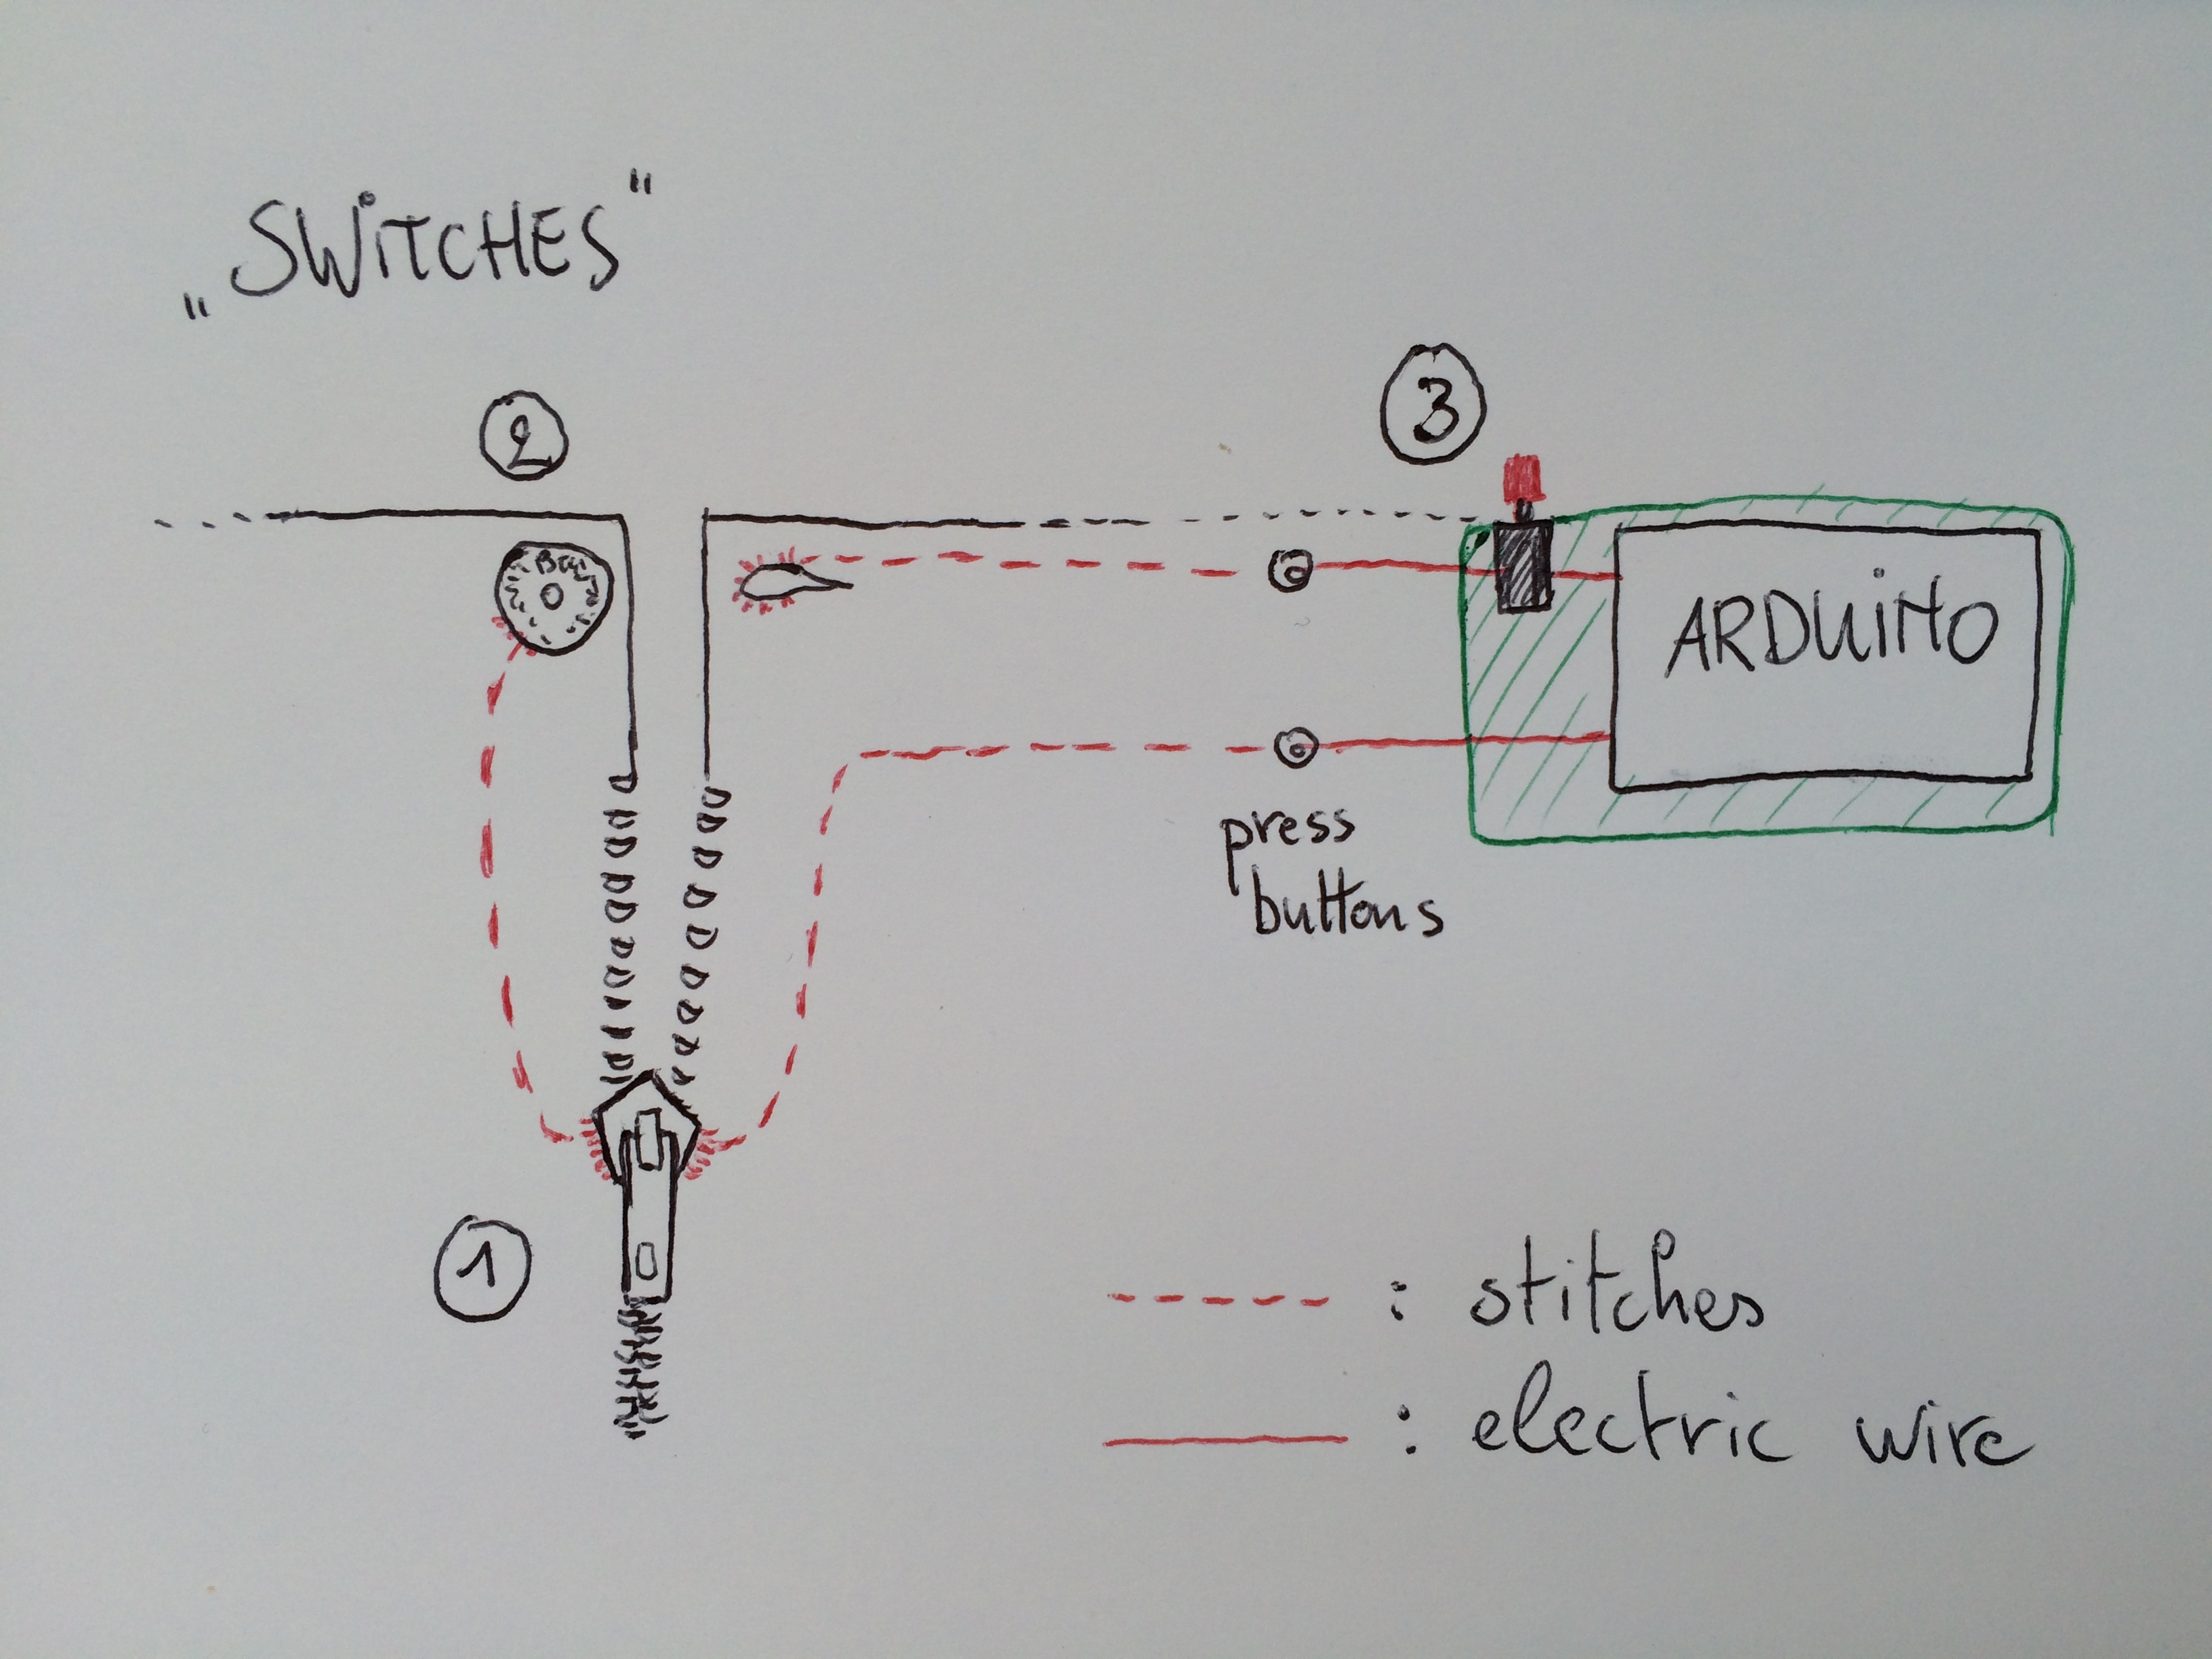 „SWiTCHES“
2
3
ARDUiNO
press
buttons
1
: stitches
: electric wire